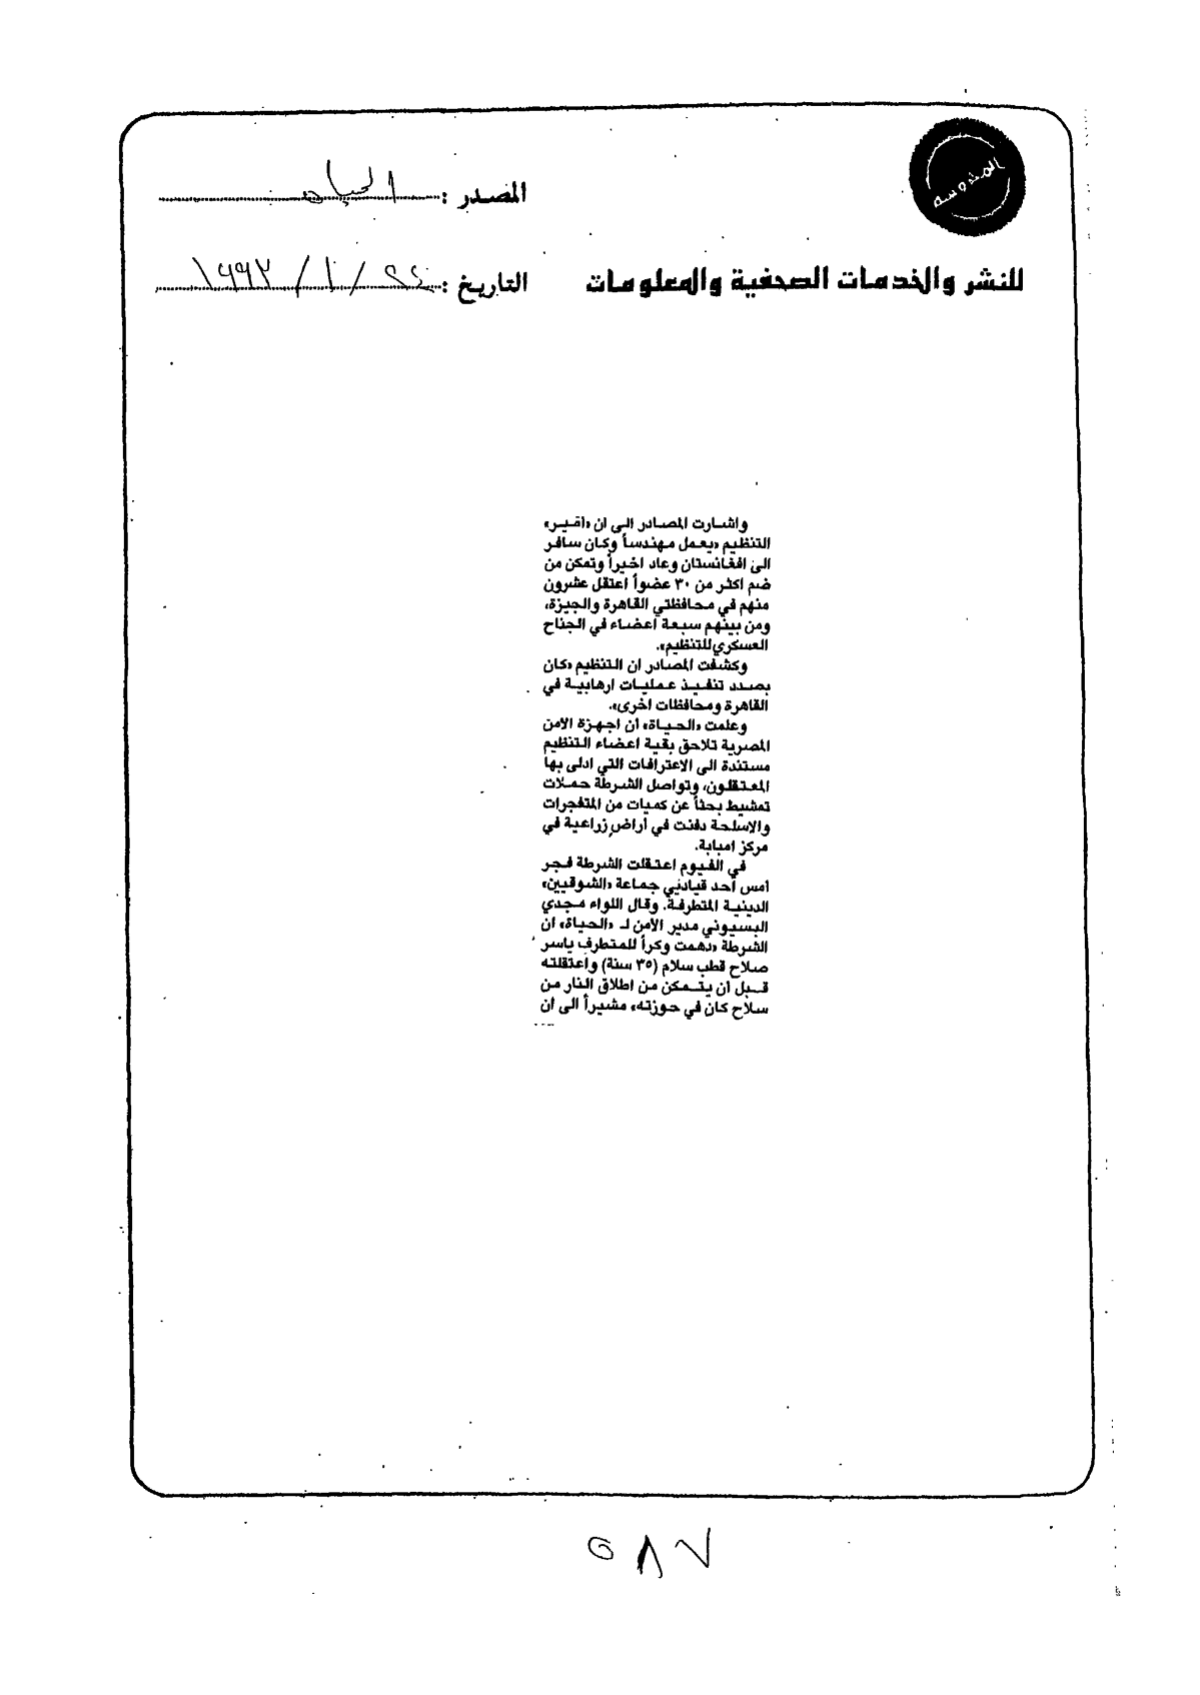 المدوسه
المصدر : الحياه
للنشر والخدمات الصحفية والمعلومات
التاريخ : ٢٤ / ١٠ / ١٩٩٣
واشارت المصادر الى ان «أمير»
التنظيم «يعمل مهندساً وكان سافر
الى افغانستان وعاد اخيراً وتمكن من
ضم اكثر من ٣٠ عضواً اعتقل عشرون
منهم في محافظتي القاهرة والجيزة،
ومن بينهم سبعة اعضاء في الجناح
العسكري للتنظيم».
وكشفت المصادر ان التنظيم «كان
بصدد تنفيذ عمليات ارهابية في
القاهرة ومحافظات اخرى».
وعلمت «الحياة» أن اجهزة الامن
المصرية تلاحق بقية اعضاء التنظيم
مستندة الى الاعترافات التي ادلى بها
المعتقلون، وتواصل الشرطة حملات
تمشيط بحثاً عن كميات من المتفجرات
والاسلحة دفنت في أراض زراعية في
مركز امبابة.
في الفيوم اعتقلت الشرطة فجر
أمس أحد قياديي جماعة «الشوقيين»
الدينية المتطرفة. وقال اللواء مجدي
البسيوني مدير الأمن لـ «الحياة» ان
الشرطة «دهمت وكراً للمتطرف ياسر
صلاح قطب سلام (٣٥ سنة) واعتقلته
قبل أن يتمكن من اطلاق النار من
سلاح كان في حوزته» مشيراً الى ان
٥٨٧